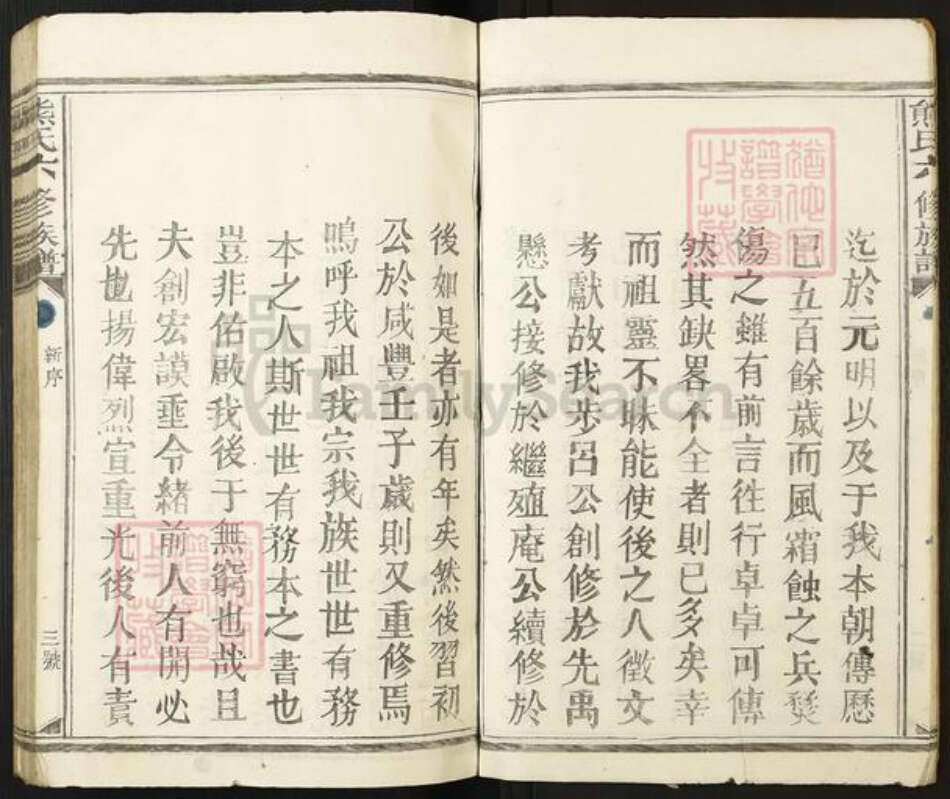 熊氏六修族譜
迄於元明以及于我本朝傳歷
已五百餘歲而風霜蝕之兵燹
傷之雖有前言徃行卓卓可傳
然其缺畧不全者則已多矣幸
而祖靈不昧能使後之人徵文
考獻故我步呂公創修於先禹
懸公接修於繼殖庵公續修於
後如是者亦有年矣然後習初
公於咸豐壬子歲則又重修焉
嗚呼我祖我宗我族世世有務
本之人斯世世有務本之書也
豈非佑啟我後于無窮也哉且
夫創宏謨垂令緒前人有開必
先也揚偉烈宣重光後人有責
熊氏六修族譜
新序
三號
譜學會
收藏
FamilySearch